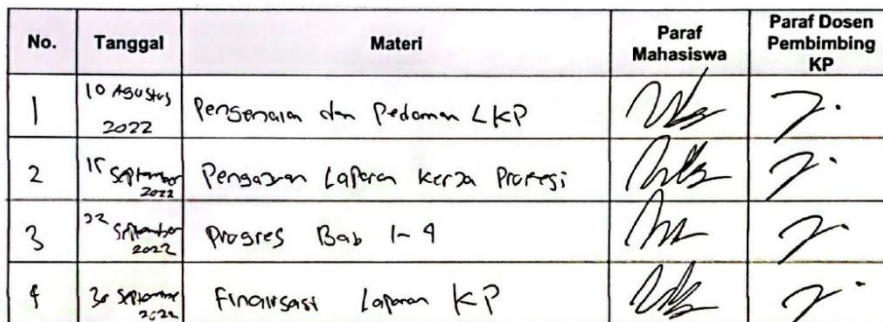 No. Tanggal Materi Paraf Mahasiswa Paraf Dosen Pembimbing KP
1 10 Agustus 2022 Pengenalan dan Pedoman LKP
2 15 September 2022 Laporan Kerja
3 22 September 2022 Progres Bab 1-4
4 30 September 2022 Finalisasi Laporan KP